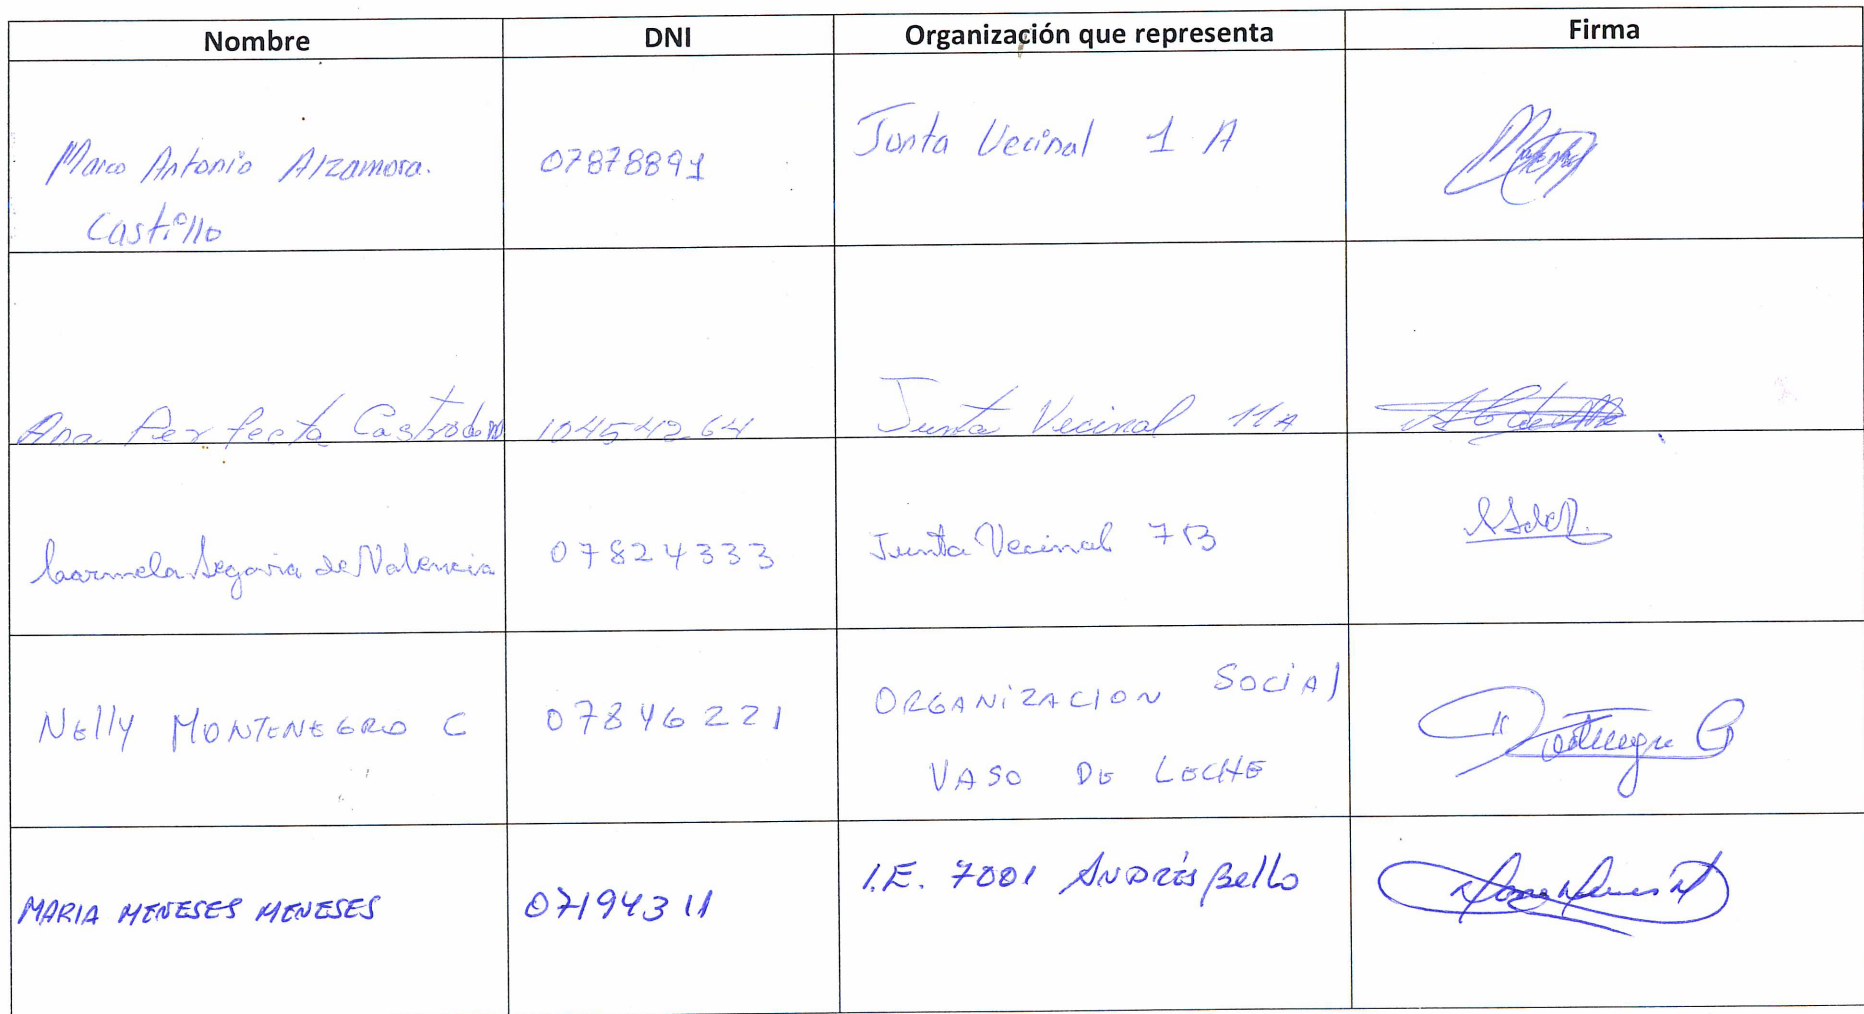 Nombre DNI Organización que representa Firma
Marco Antonio Alzamora. 07878891 Junta Vecinal 1 A
Castillo
Ana Perfecta Castro de 10454264 Junta Vecinal 11 A
Carmela Segovia de Valencia 07824333 Junta Vecinal 7B
Nelly MONTENEGRO C 07846221 ORGANIZACION SOCIAl
VASO DE LECHE
MARIA MENESES MENESES 07194311 I.E. 7001 ANDRÉS Bello